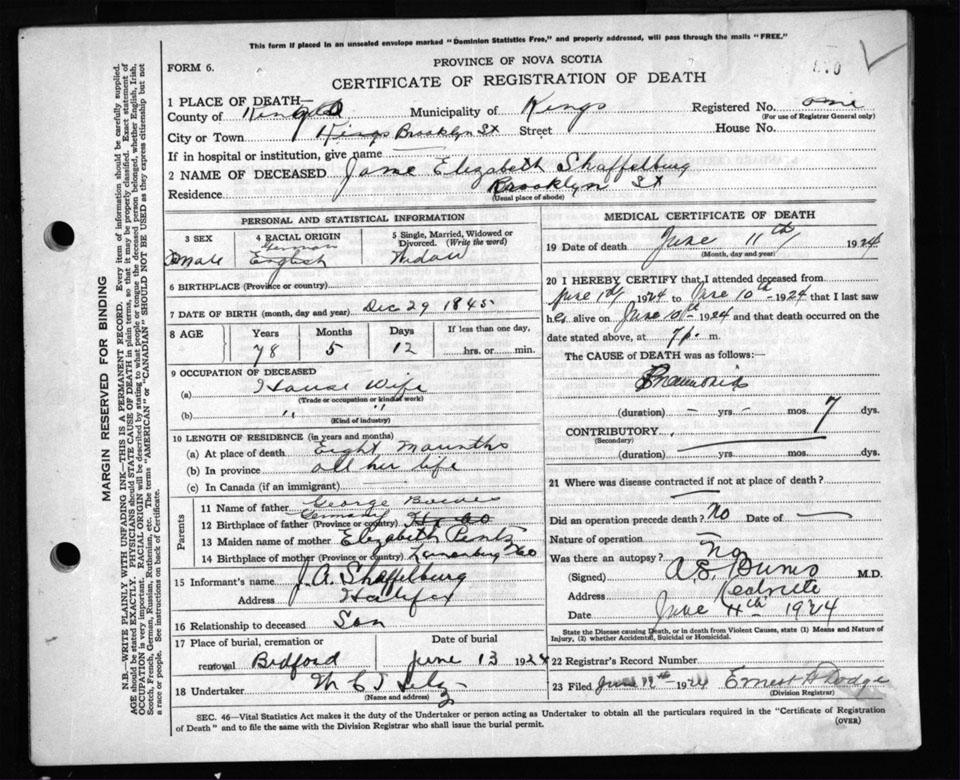 This form if placed in an unsealed envelope marked "Dominion Statistics Free," and properly addressed, will pass through the mails "FREE."
FORM 6.
PROVINCE OF NOVA SCOTIA
CERTIFICATE OF REGISTRATION OF DEATH
1 PLACE OF DEATH—
County of Kings Municipality of Kings Registered No. one
(For use of Registrar General only)
City or Town Kings Brooklyn St Street House No.
If in hospital or institution, give name —
2 NAME OF DECEASED Jane Elizabeth Shaffelburg
Residence Brooklyn St
(Usual place of abode)
PERSONAL AND STATISTICAL INFORMATION
3 SEX
4 RACIAL ORIGIN
5 Single, Married, Widowed or Divorced. (Write the word)
German
English
Widow
6 BIRTHPLACE (Province or country)
7 DATE OF BIRTH (month, day and year) Dec 29 1845
8 AGE Years Months Days If less than one day,
78 5 12 hrs. or min.
9 OCCUPATION OF DECEASED
(a) House Wife
(Trade or occupation or kind of work)
(b) " "
(Kind of industry)
10 LENGTH OF RESIDENCE (in years and months)
(a) At place of death Eight Mounths
(b) In province all her life
(c) In Canada (if an immigrant)
Parents
11 Name of father George
12 Birthplace of father (Province or country)
13 Maiden name of mother Elizabeth Pentz
14 Birthplace of mother (Province or country) Lunenburg Co
15 Informant's name J. A. Shaffelburg
Address Halifax
16 Relationship to deceased Son
17 Place of burial, cremation or removal Date of burial
Bedford June 13 1924
18 Undertaker
(Name and address)
MEDICAL CERTIFICATE OF DEATH
19 Date of death June 11th 1924
(Month, day and year)
20 I HEREBY CERTIFY that I attended deceased from
June 1st 1924 to June 10th 1924 that I last saw
her alive on June 10th 1924 and that death occurred on the
date stated above, at 7 p. m.
The CAUSE of DEATH was as follows:—
(duration) — yrs — mos. 7 dys.
CONTRIBUTORY
(Secondary)
(duration) yrs. mos. dys.
21 Where was disease contracted if not at place of death?
Did an operation precede death? No Date of —
Nature of operation —
Was there an autopsy? No
(Signed) A. S. Burns M.D.
Address Kentville
Date June 11th 1924
State the Disease causing Death, or in death from Violent Causes, state (1) Means and Nature of Injury, (2) whether Accidental, Suicidal or Homicidal.
22 Registrar's Record Number
23 Filed June 12th 1924 Ernest A Dodge
(Division Registrar)
SEC. 46—Vital Statistics Act makes it the duty of the Undertaker or person acting as Undertaker to obtain all the particulars required in the "Certificate of Registration
of Death" and to file the same with the Division Registrar who shall issue the burial permit.
(OVER)
MARGIN RESERVED FOR BINDING
N.B.—WRITE PLAINLY WITH UNFADING INK—THIS IS A PERMANENT RECORD. Every item of information should be carefully supplied.
AGE should be stated EXACTLY. PHYSICIANS should STATE CAUSE OF DEATH in plain terms, so that it may be properly classified. Exact statement of
OCCUPATION is very important. RACIAL ORIGIN will be described by stating to what people or tongue the deceased person belonged, whether English, Irish,
Scotch, French, German, Russian, Ruthenian, etc. The terms "AMERICAN" or "CANADIAN" SHOULD NOT BE USED as they express citizenship but not
a race or people. See instructions on back of Certificate.